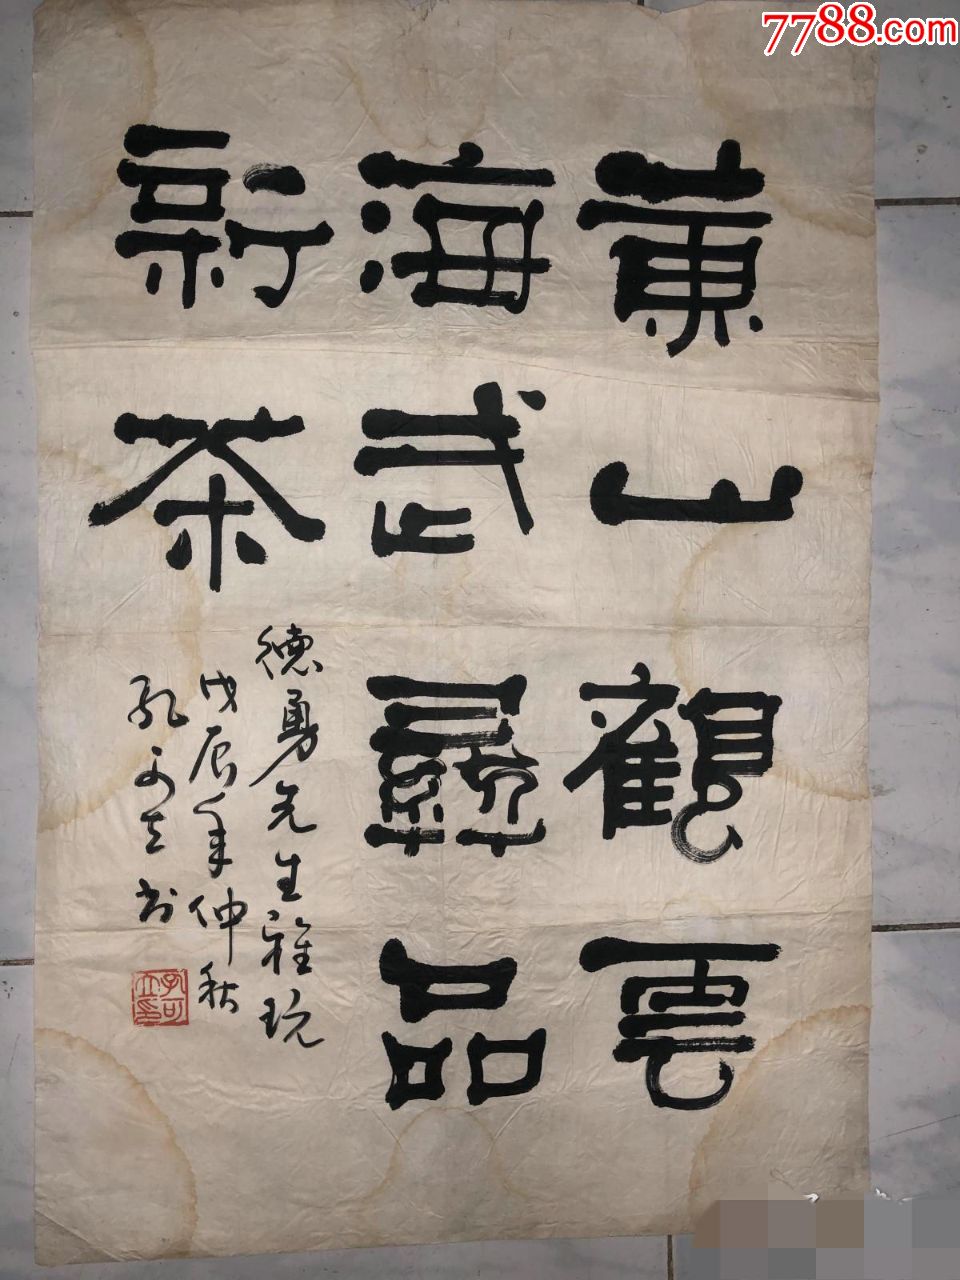 7788.com
黄山觀雲
海武彞品
新茶
德勇先生雅玩
戊辰年仲秋
孔可立书
孔可立印